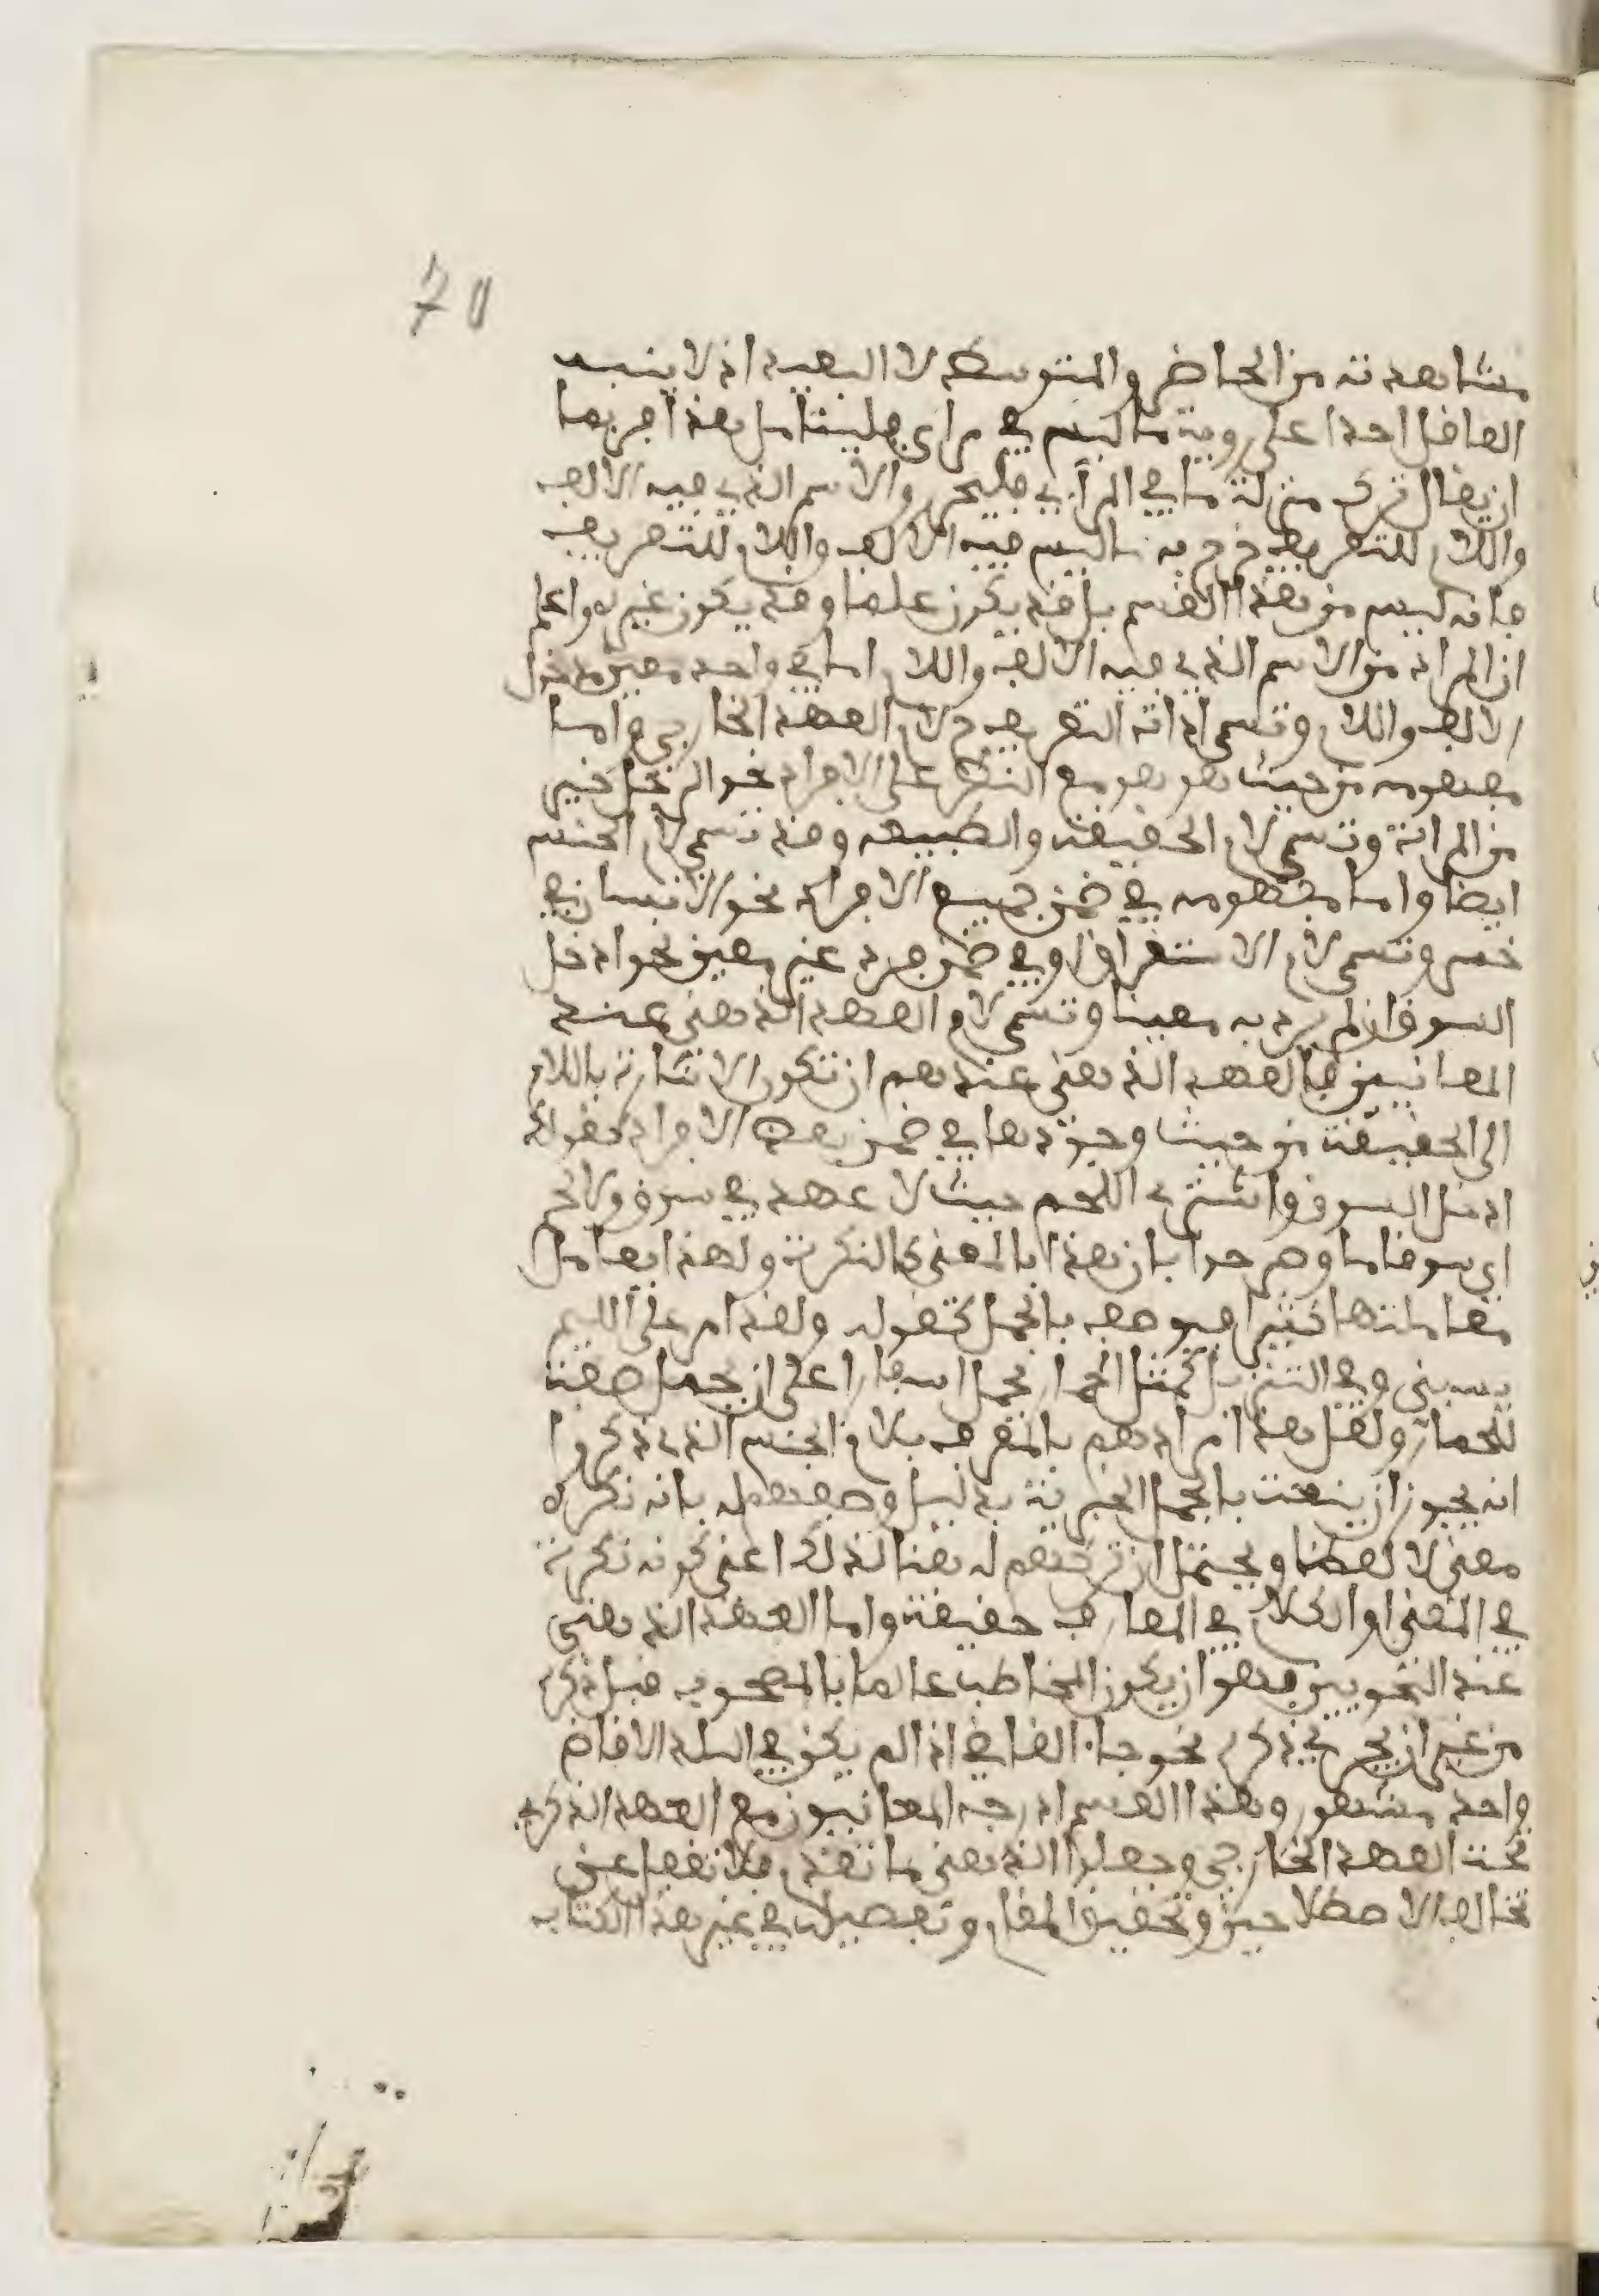 70
مشاهدته من الحاضر والمتوسط لا البعيد اذ لا ينبه
العاقل احدا على روية ما ليس في مراى فليتامل هذا فربما
ان يقال ترك منزلة ما في المرآى فليحرر والاسم الذي فيه الالف
واللام للتعريف خرج به ما ليس فيه الالف واللام للتعريف
فانه ليس من هذا القسم بل قد يكون علما وقد يكون غيره واعلم
ان المراد من الاسم الذي فيه الالف واللام اما في واحد معين مدخول
الالف واللام وتسمى اداة التعريف ح لام العهد الخارجي واما
مفهومه من حيث هو هو مع النظر على الافراد نحو الرجل خير
من المراة وتسمى لام الحقيقة والطبيعة وقد تسمى لام الجنس
ايضا واما مفهومه في ضمن جميع الافراد نحو الانسان لفي
خسر وتسمى لام الاستغراق او في ضمن فرد غير معين نحو ادخل
السوق ان لم يرد به معينا وتسمى لام العهد الذهني عند
المعانيين فالعهد الذهني عندهم ان تكون الاشارة باللام
الى الحقيقة من حيث وجودها في ضمن بعض الافراد كقولك
ادخل السوق واشتري اللحم حيث لا عهد في سوق ولا لحم
اي سوقا ما وصرحوا بان هذا بالمعنى كالنكرة ولهذا يعامل
معاملتها كثيرا فيوصف بالجمل كقوله ولقد امر على اللييم
يسبني وفي التنزيل كمثل الحمار يحمل اسفارا على ان يحمل صفة
للحمار ولعل هذا مرادهم بالمعرف بلام الجنس الذي ذكروا
انه يجوز ان ينعت بالجمل الخبرية بدليل وصفهم له بانه نكره
معنى لا لفظا ويحتمل ان تركهم له هنا لذلك اعني كونه نكرة
في المعنى او الكلام في المعارف حقيقة واما العهد الذهني
عند النحويين فهو ان يكون المخاطب عالما بالمصحوب قبل ذكره
من غير ان يجري ذكره نحو جا القاضي اذا لم يكن في البلد الا قاض
واحد مشهور وهذا القسم ادرجه المعانيون مع العهد الذكري
تحت العهد الخارجي وجعلوا الذهني ما تقدم فلا تغفل عن
تخالف الاصطلاحين وتحقيق المقام وتفصيله في غير هذا الكتاب